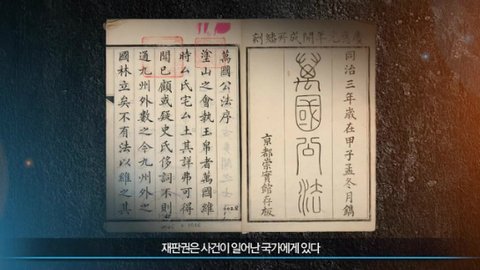 慶應元年開成所繙刻
同治三年歲在甲子孟冬月鐫
萬國公法
京都崇實館存板
萬國公法序
塗山之會執玉帛者萬國維
時厶氏宅厶土其詳弗可得
聞已顧或疑史氏侈詞不則
通九州外數之今九州外之
國林立矣不有法以維之其
재판권은 사건이 일어난 국가에게 있다